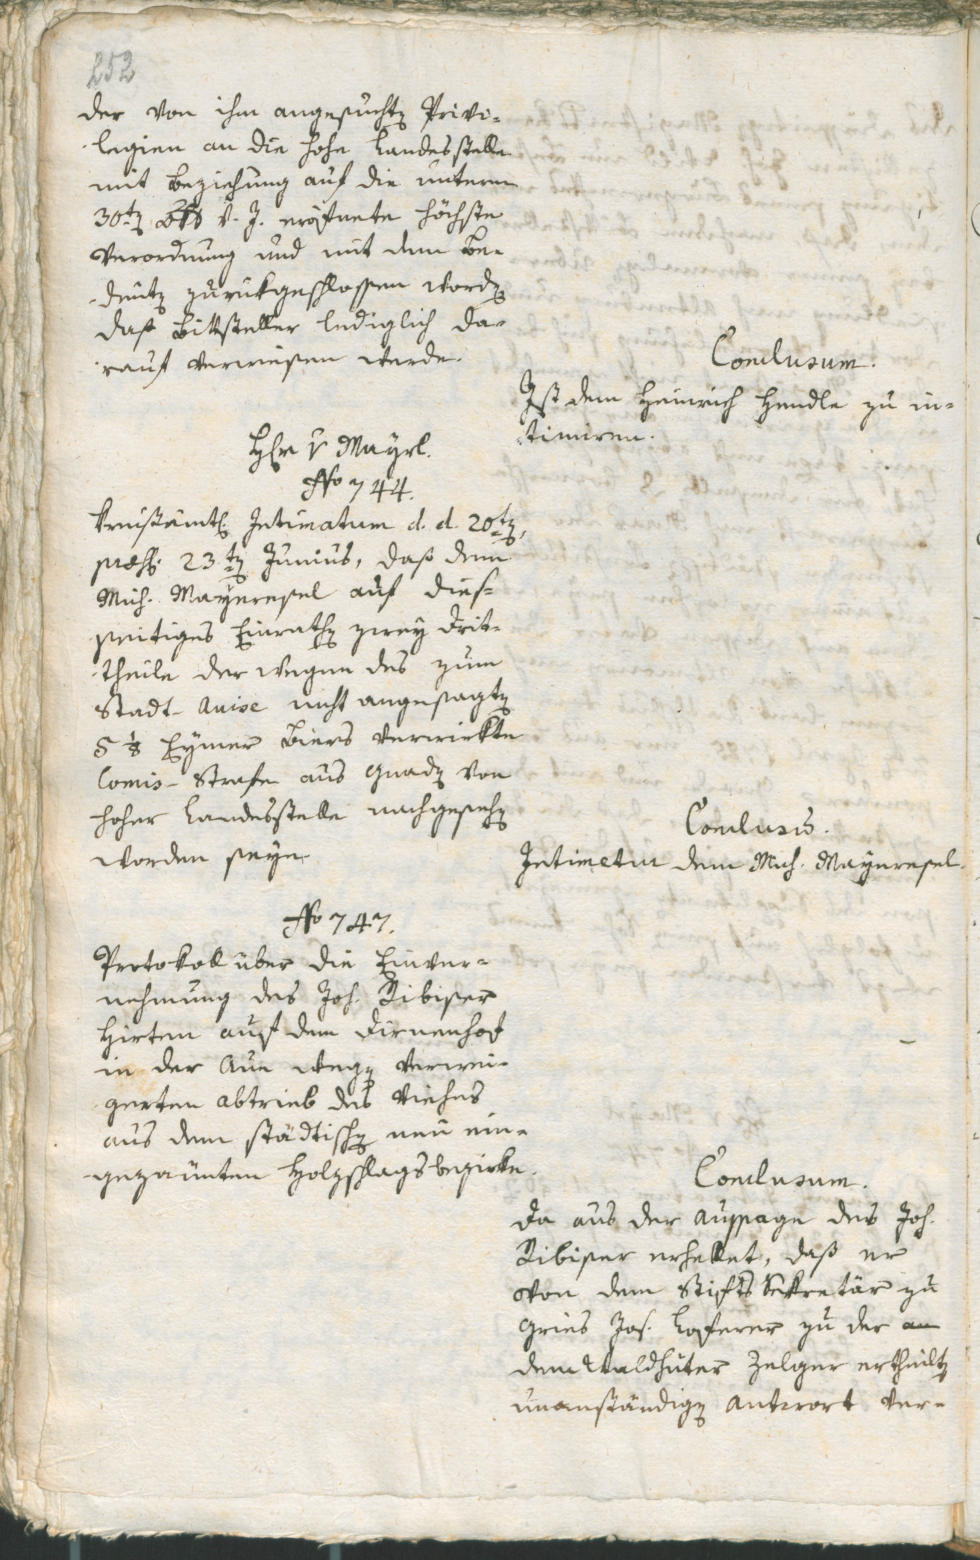 252
der von ihm angesuchten Privi-
legien an die hohe Landesstelle
mit Beziehung auf die unterm
30ten 8bris v. J. eröfnete höchste
Verordnung und mit dem Be-
deuten zurückgeschlossen worden
daß Bittsteller lediglich da-
rauf verwiesen werde.
Conclusum.
Ist dem Heinrich Hendle zu in-
timiren.
Hr v Mayrl.
No 744.
Kreisämtl. Intimatum d. d. 20ten,
præs. 23ten Junius, daß dem
Mich. Mayeresel auf dies-
seitiges Einrathen zwey Drit-
theile der wegen des zum
Stadt-Avise nicht angesagten
5 1/8 Eymer Biers verwirkte
Comis-Strafe aus Gnaden von
hoher Landesstelle nachgesehen
worden seye.
Conclusum.
Intimetur dem Mich. Mayeresel.
No 747.
Protokoll über die Einver-
nehmung des Joh. Ribiser
Hirten auf dem Dirnenhof
in der Aue wegen verwei-
gerten Abtrieb des Viehes
aus dem städtischen neu ein-
gezäunten Holzschlagsbezirke.
Conclusum.
Da aus der Aussage des Joh.
Ribiser erhellet, daß er
von dem Stifts Sekretär zu
Gries Jos. Loserer zu der an
dem Waldhüter Zelger ertheilten
unanständigen Antwort ver-